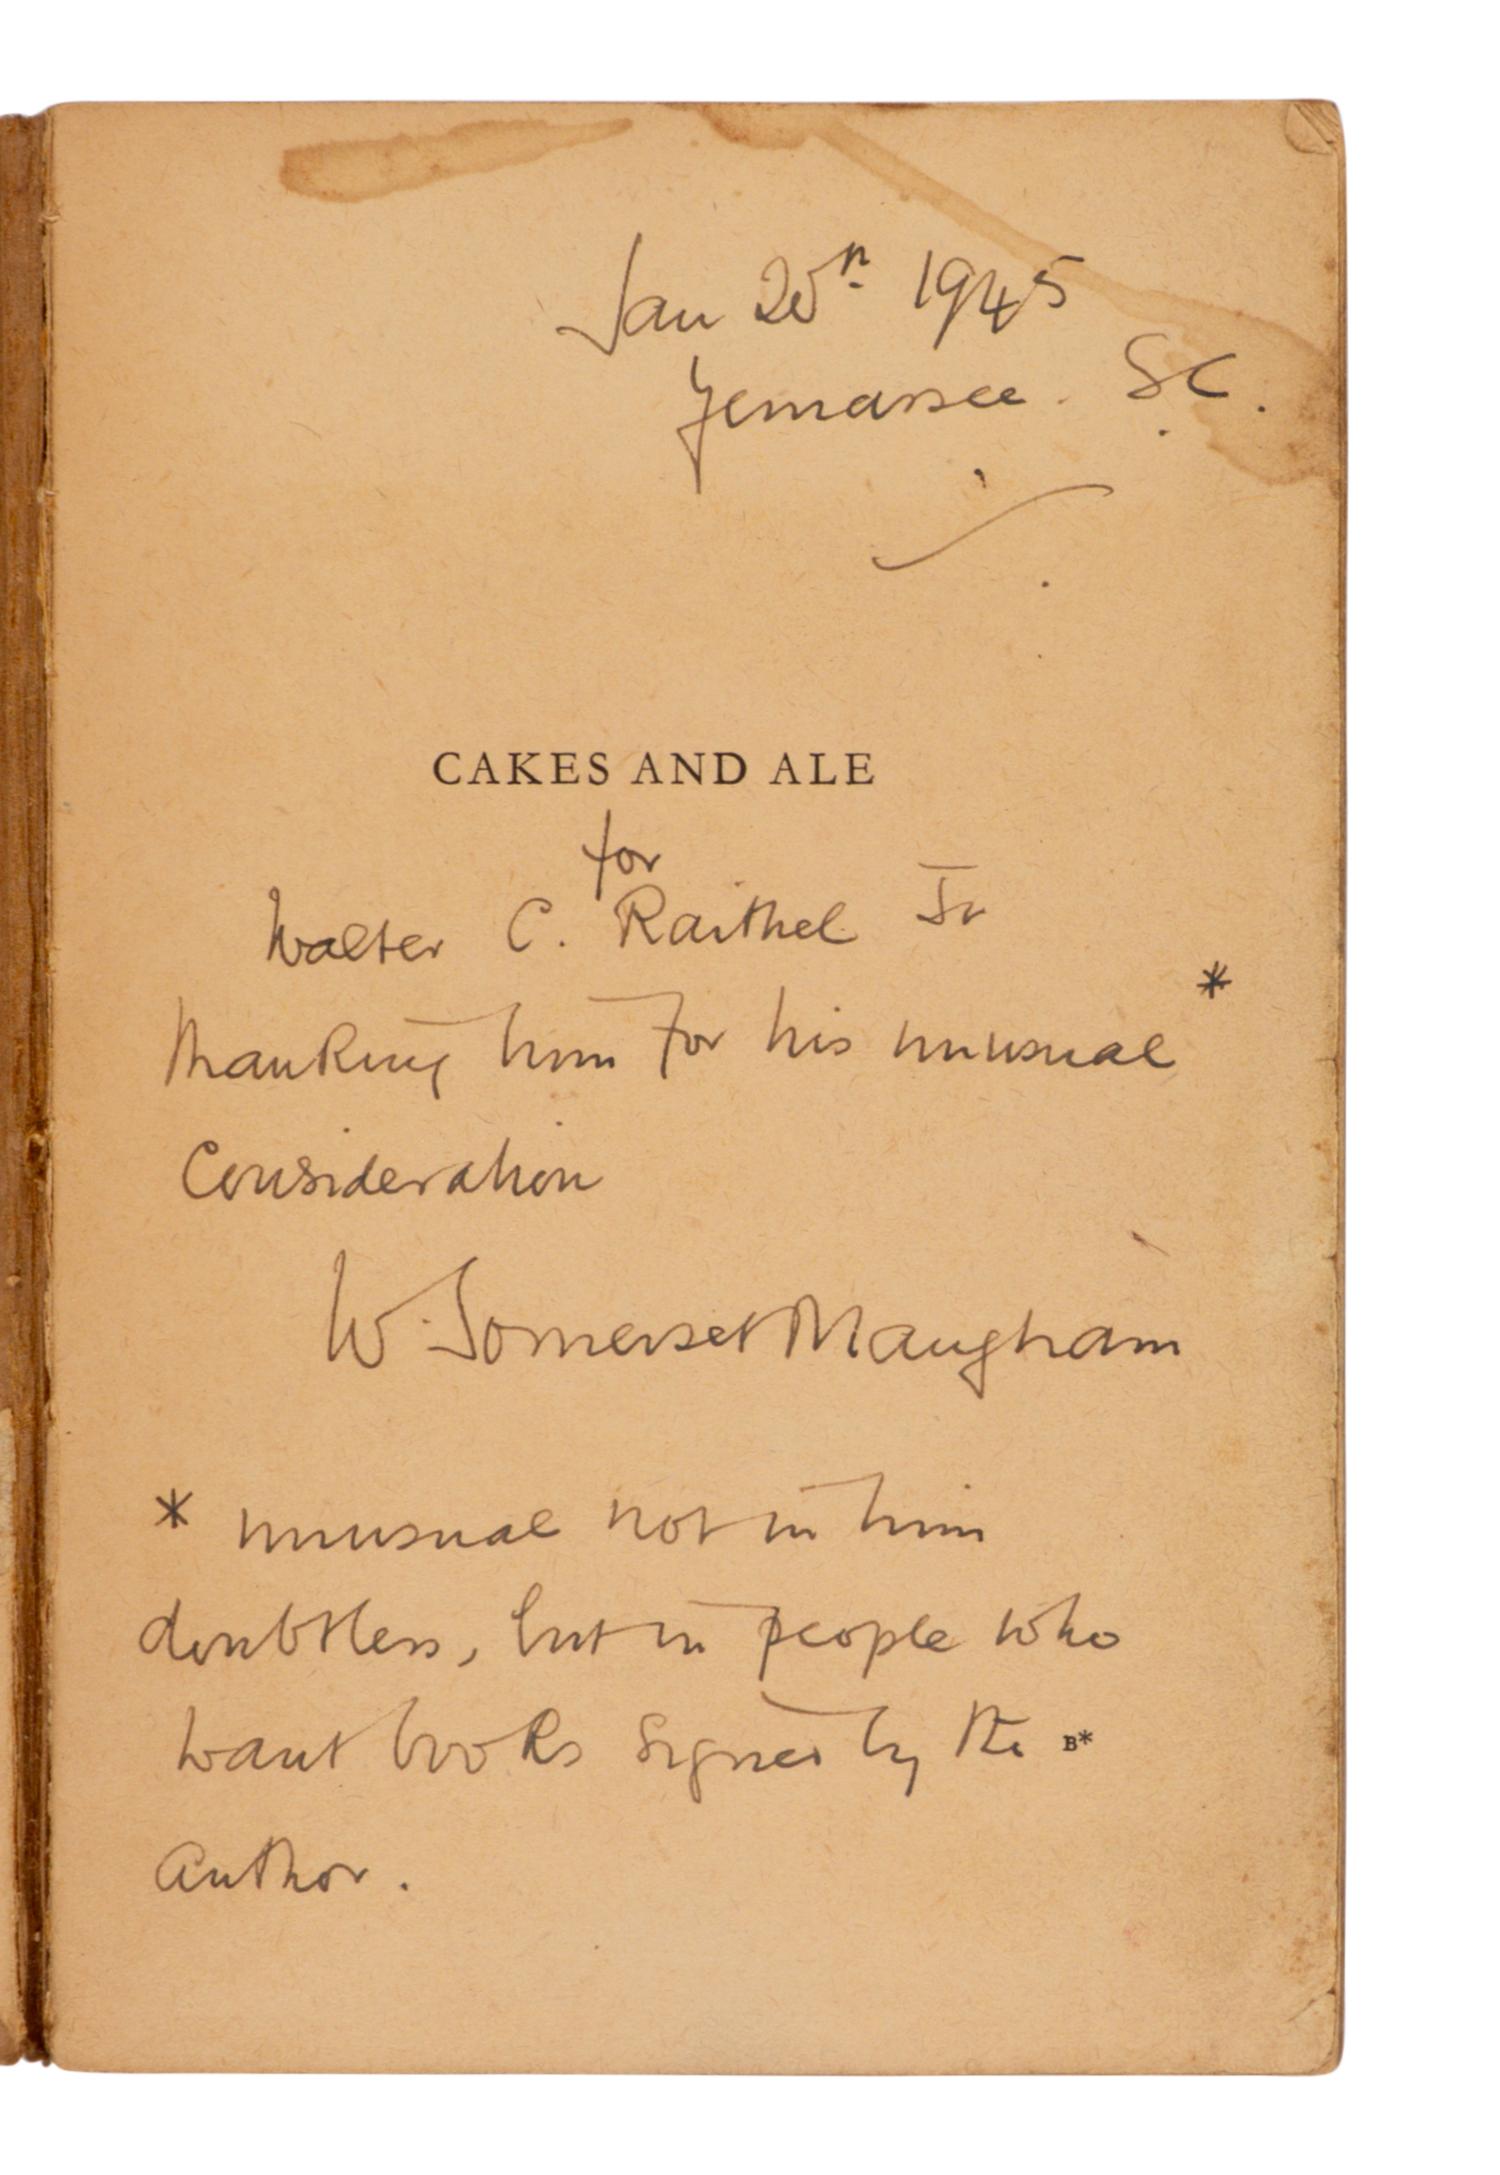 Jan 20th 1945
Yemassee. S.C.
CAKES AND ALE
for
Walter C. Raithel Jr
thanking him for his unusual *
Consideration
W. Somerset Maugham
* unusual not in him
doubtless, but in people who
want books signed by the B*
author.